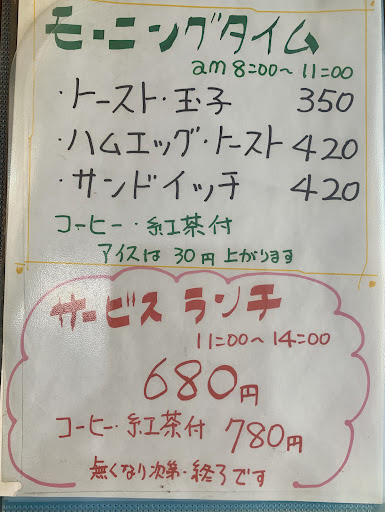 モーニングタイム
am 8:00〜11:00
・トースト・玉子 350
・ハムエッグ・トースト 420
・サンドイッチ 420
コーヒー・紅茶付
アイスは 30円 上がります
サービス ランチ
11:00〜14:00
680円
コーヒー・紅茶付 780円
無くなり次第・終了です